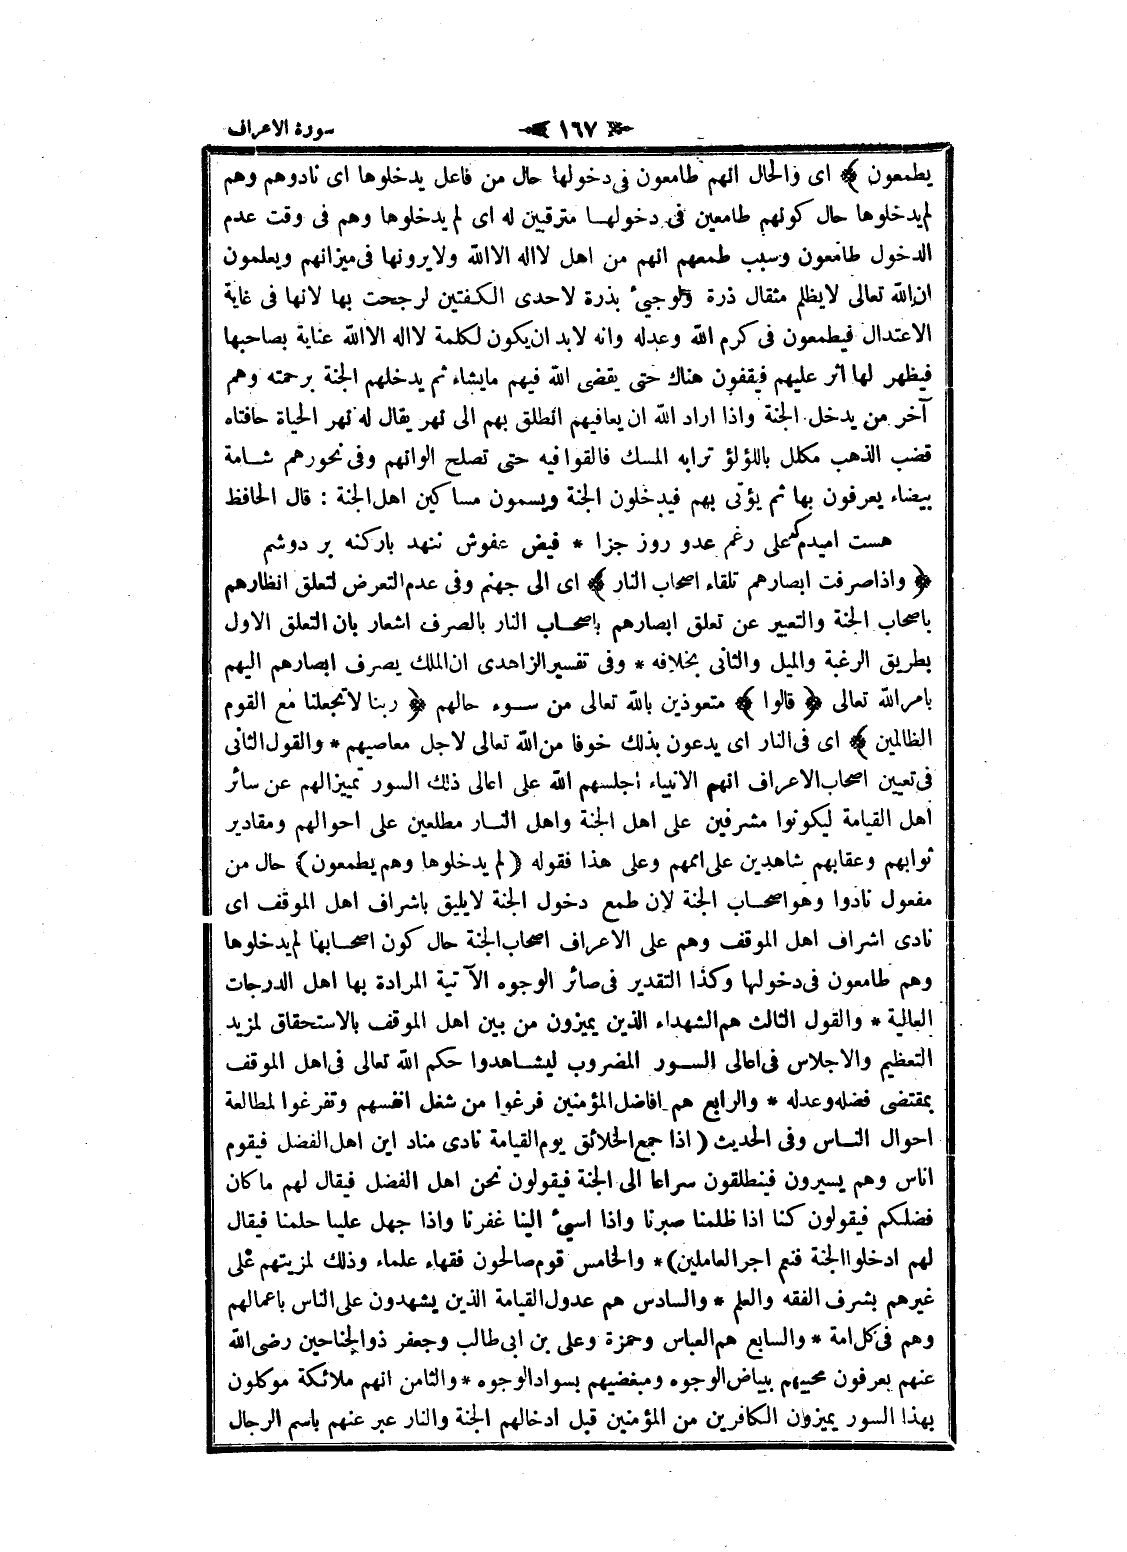 سورة الاعراف ١٦٧
يطمعون ﴾ اى والحال انهم طامعون فى دخولها حال من فاعل يدخلوها اى نادوهم وهم
لم يدخلوها حال كونهم طامعين فى دخولهــا مترقبين له اى لم يدخلوها وهم فى وقت عدم
الدخول طامعون وسبب طمعهم انهم من اهل لااله الاالله ولايرونها فى ميزانهم ويعلمون
ان الله تعالى لايظلم مثقال ذرة ولوجيئ بذرة لاحدى الكفتين لرجحت بها لانها فى غاية
الاعتدال فيطمعون فى كرم الله وعدله وانه لابد ان يكون لكلمة لااله الاالله عناية بصاحبها
فيظهر لها اثر عليهم فيقفون هناك حتى يقضى الله فيهم مايشاء ثم يدخلهم الجنة برحمته وهم
آخر من يدخل الجنة واذا اراد الله ان يعافيهم انطلق بهم الى نهر يقال له نهر الحياة حافتاه
قضب الذهب مكلل باللؤلؤ ترابه المسك فالقوا فيه حتى تصلح الوانهم وفى نحورهم شــامة
بيضاء يعرفون بها ثم يؤتى بهم فيدخلون الجنة ويسمون مساكين اهل الجنة : قال الحافظ
هست اميدم كه على رغم عدو روز جزا * فيض عفوش ننهد باركنه بر دوشم
﴿ واذا صرفت ابصارهم تلقاء اصحاب النار ﴾ اى الى جهنم وفى عدم التعرض لتعلق انظارهم
باصحاب الجنة والتعبير عن تعلق ابصارهم باصحــاب النار بالصرف اشعار بان التعلق الاول
بطريق الرغبة والميل والثانى بخلافه * وفى تفسير الزاهدى ان الملك يصرف ابصارهم اليهم
بامر الله تعالى ﴿ قالوا ﴾ متعوذين بالله تعالى من ســوء حالهم ﴿ ربنا لاتجعلنا مع القوم
الظالمين ﴾ اى فى النار اى يدعون بذلك خوفا من الله تعالى لاجل معاصيهم * والقول الثانى
فى تعيين اصحاب الاعراف انهم الانبياء اجلسهم الله على اعالى ذلك السور تمييزا لهم عن سائر
اهل القيامة ليكونوا مشرفين على اهل الجنة واهل النــار مطلعين على احوالهم ومقادير
ثوابهم وعقابهم شاهدين على اممهم وعلى هذا فقوله ( لم يدخلوها وهم يطمعون ) حال من
مفعول نادوا وهو اصحــاب الجنة لان طمع دخول الجنة لايليق باشراف اهل الموقف اى
نادى اشراف اهل الموقف وهم على الاعراف اصحاب الجنة حال كون اصحــابها لم يدخلوها
وهم طامعون فى دخولها وكذا التقدير فى صائر الوجوه الآتية المرادة بها اهل الدرجات
العالية * والقول الثالث هم الشهداء الذين يميزون من بين اهل الموقف بالاستحقاق لمزيد
التعظيم والاجلاس فى اعالى الســور المضروب ليشــاهدوا حكم الله تعالى فى اهل الموقف
بمقتضى فضله وعدله * والرابع هم افاضل المؤمنين فرغوا من شغل انفسهم وتفرغوا لمطالعة
احوال النــاس وفى الحديث ( اذا جمع الخلائق يوم القيامة نادى مناد اين اهل الفضل فيقوم
اناس وهم يسيرون فينطلقون سراعا الى الجنة فيقولون نحن اهل الفضل فيقال لهم ما كان
فضلكم فيقولون كنا اذا ظلمنا صبرنا واذا اسيئ الينا غفرنا واذا جهل علينا حلمنا فيقال
لهم ادخلوا الجنة فنعم اجر العاملين ) * والخامس قوم صالحون فقهاء علماء وذلك لمزيتهم على
غيرهم بشرف الفقه والعلم * والسادس هم عدول القيامة الذين يشهدون على الناس باعمالهم
وهم فى كل امة * والسابع هم العباس وحمزة وعلى بن ابى طالب وجعفر ذوالجناحين رضى الله
عنهم يعرفون محبيهم ببياض الوجوه ومبغضيهم بسواد الوجوه * والثامن انهم ملائكة موكلون
بهذا السور يميزون الكافرين من المؤمنين قبل ادخالهم الجنة والنار عبر عنهم باسم الرجال